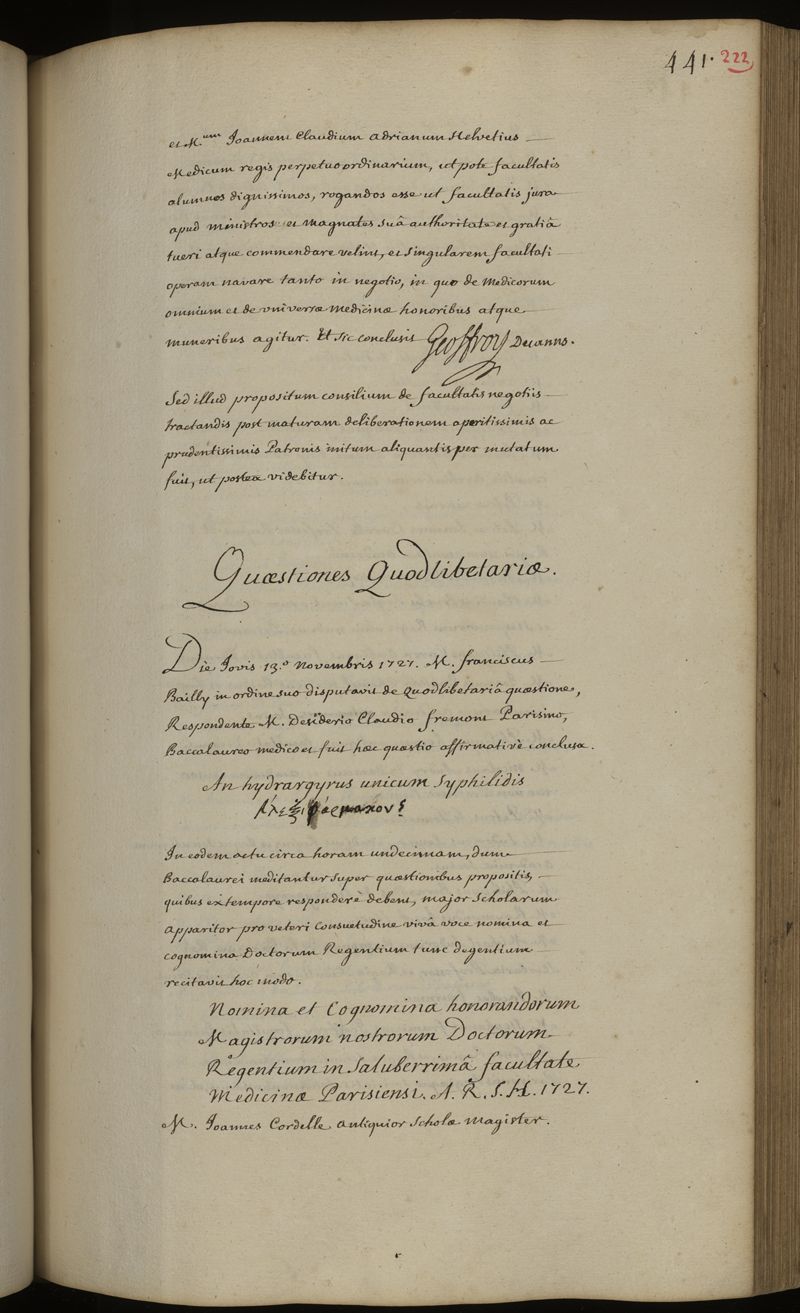 441. 222
et M.um Joannem Claudium adrianum Helvetius
Medicum regis perpetuo ordinarium, utpote facultatis
alumnos dignissimos, rogandos esse ut facultatis jura
apud ministros et magnates suâ authoritate et gratiâ
tueri atque commendare velint, et singularem facultati
operam navare tanto in negotio, in quo de Medicorum
omnium et de universæ medicinæ honoribus atque
muneribus agitur. Et sic conclusit Geoffroy Decanus.
Sed illud propositum consilium de facultatis negotiis
tractandis post maturam deliberationem a peritissimis ac
prudentissimis Patronis initum aliquantisper mutatum
fuit, ut postea videbitur.
Quæstiones Quodlibetariæ.
Die Jovis 13.º Novembris 1727. M. franciscus
Bailly in ordine suo disputavit de Quodlibetariâ quæstione,
Respondente M. Desiderio Claudio fremont Parisino,
Baccalaureo medico et fuit hæc quæstio affirmativè conclusa.
An hydrargyrus unicum Syphilidis
Ἀλεξιφάρμακον?
In eodem actu circa horam undecimam, dum
Baccalaurei meditantur super quæstionibus propositis,
quibus extempore respondere debent, major Scholarum
apparitor pro veteri Consuetudine vivâ voce nomina et
cognomina Doctorum Regentium tunc degentium
recitavit hoc modo.
Nomina et Cognomina honorandorum
Magistrorum nostrorum Doctorum
Regentium in Saluberrimâ facultate
Medicinæ Parisiensi. A. R. S. H. 1727.
M. Joannes Cordelle antiquior Scholæ Magister.